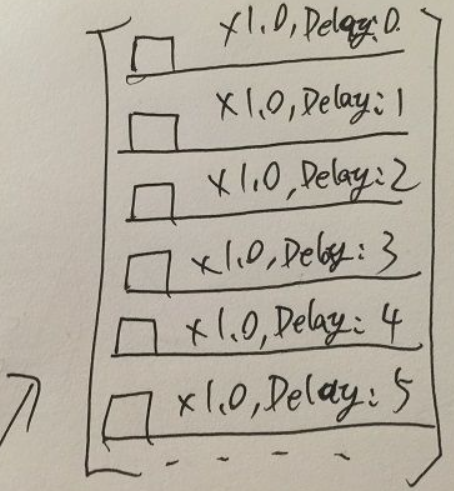 x1.0, Delay: 0.
x1.0, Delay: 1
x1.0, Delay: 2
x1.0, Delay: 3
x1.0, Delay: 4
x1.0, Delay: 5